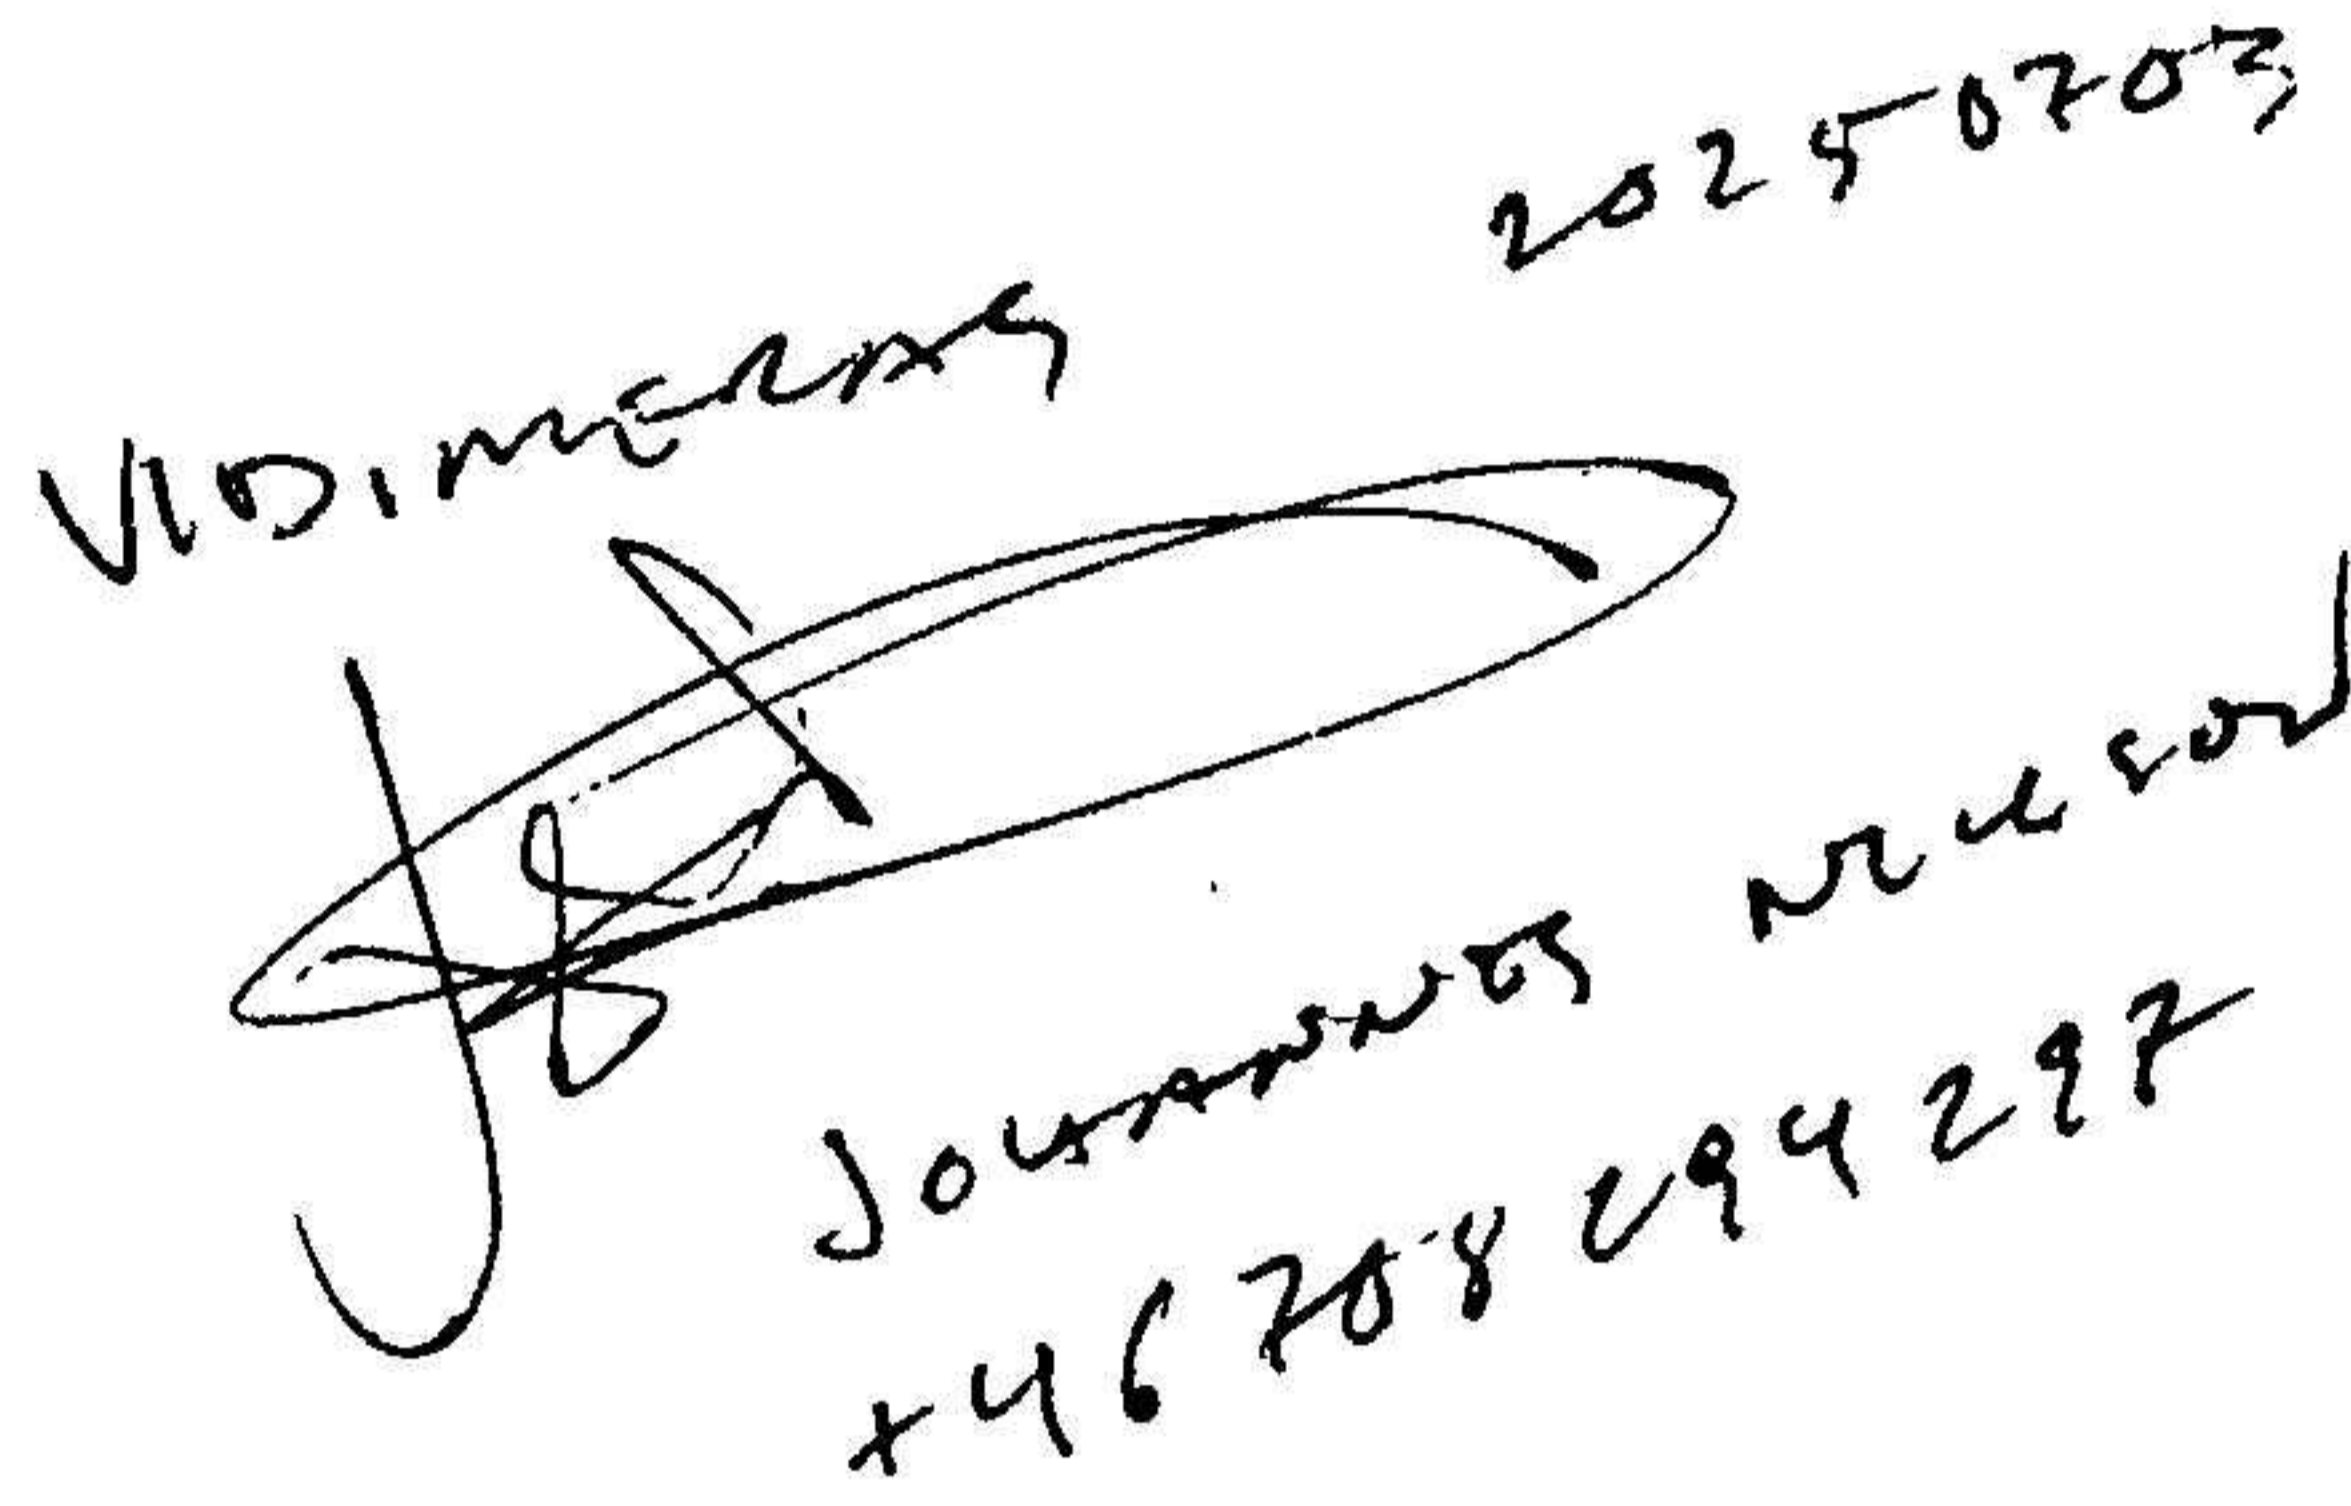 VIDIMERAS 20250703
JOHANNES NILSSON
+46 708 694297